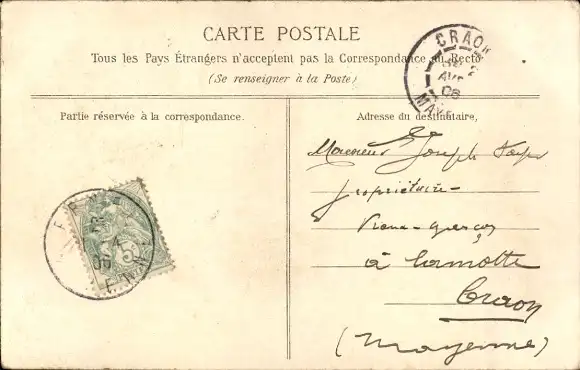 CARTE POSTALE
Tous les Pays Étrangers n'acceptent pas la Correspondance au Recto
(Se renseigner à la Poste)
CRAON
AVR
06
MAY
Partie réservée à la correspondance.
Adresse du destinataire,
Monsieur Joseph
propriétaire
Vieux-garçon
à Lamotte
Craon
(Mayenne)
5
4
06